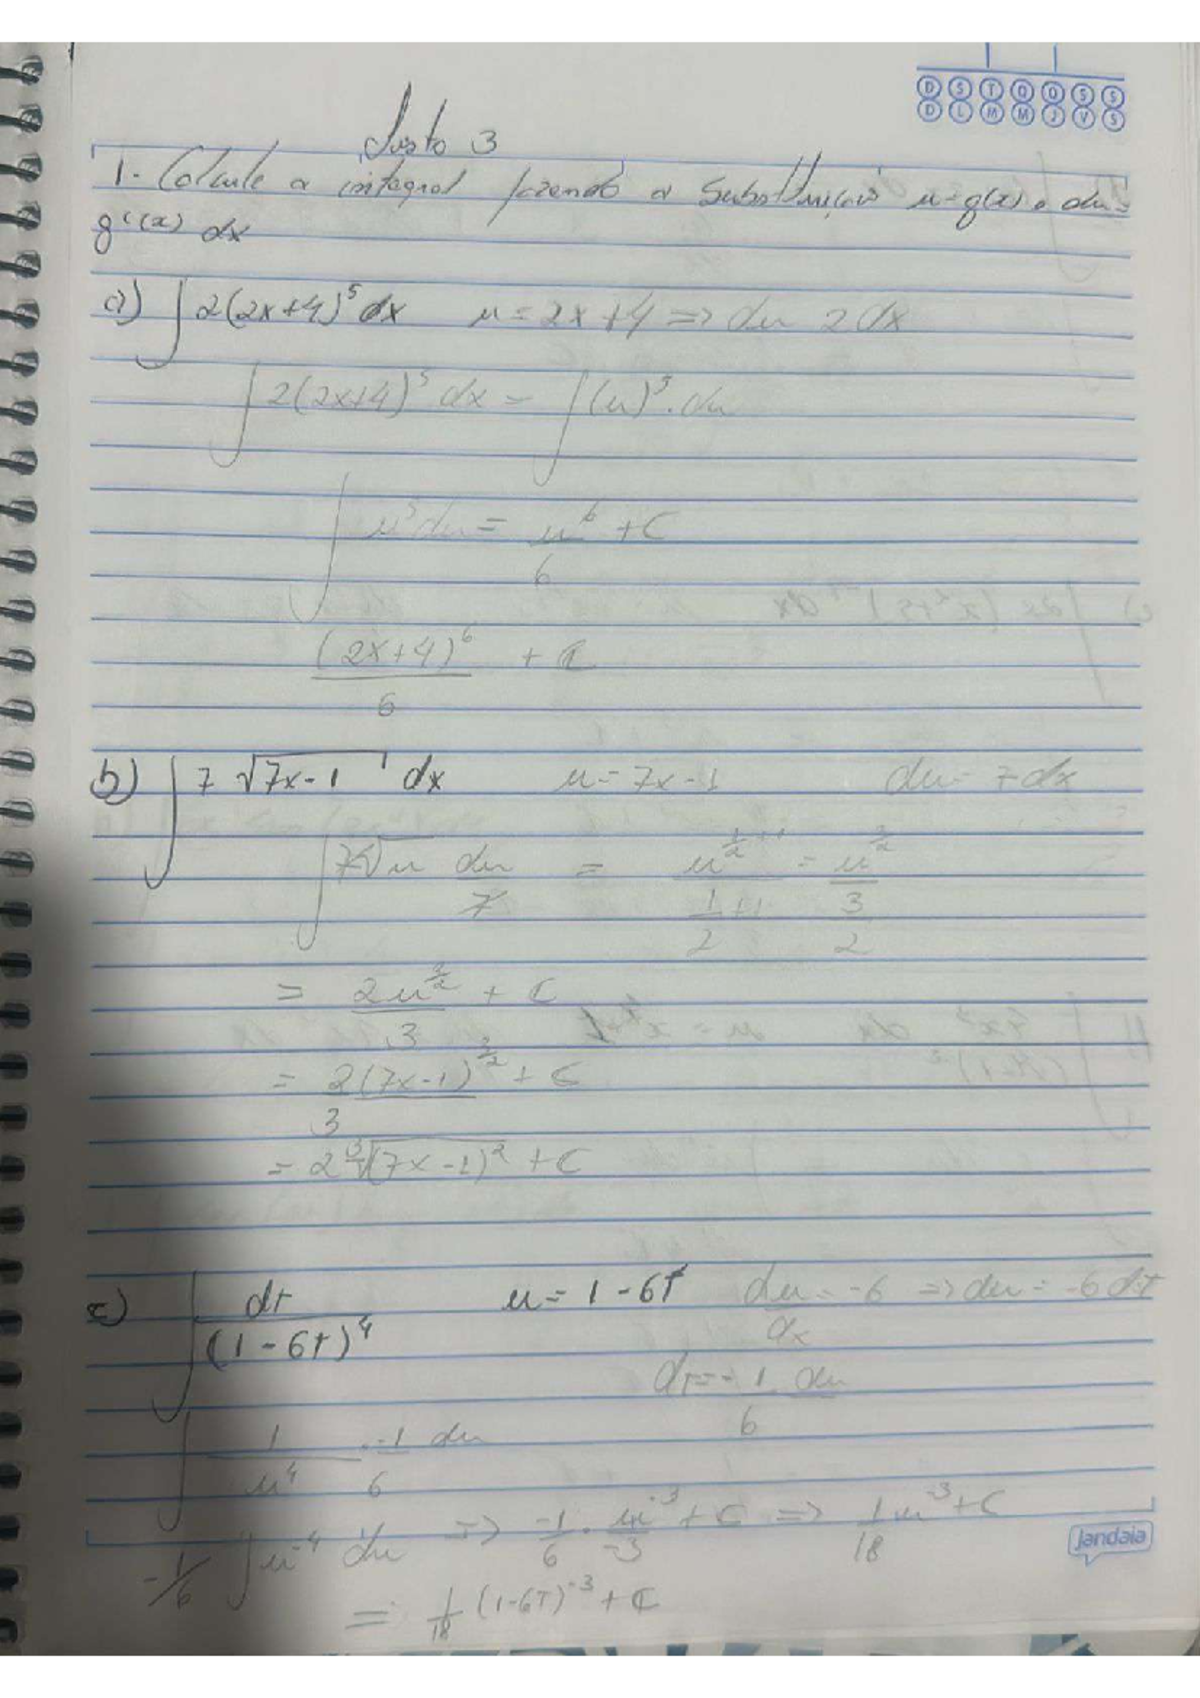 D S T Q Q S S
D L M M J V S
Justo 3
1. Calcule a integral fazendo a substituição u=g(x) e du=
g'(x) dx
a) ∫ 2(2x+4)^5 dx u = 2x+4 => du 2dx
∫ 2(2x+4)^5 dx = ∫ (u)^5 . du
∫ u^5 du = u^6/6 + C
(2x+4)^6/6 + C
b) ∫ 7 √(7x-1) dx u = 7x-1 du = 7dx
∫ 7√u du/7 = u^(1/2+1)/(1/2+1) = u^(3/2)/(3/2)
= 2u^(3/2)/3 + C
= 2(7x-1)^(3/2)/3 + C
= 2 ∛(7x-1)^2 + C
c) ∫ dt/(1-6t)^4 u = 1-6t du/dx = -6 => du = -6dt
dt = -1/6 du
∫ 1/u^4 . -1/6 du
-1/6 ∫ u^-4 du => -1/6 . u^-3/-3 + C => 1/18 u^-3 + C
= 1/18 (1-6t)^-3 + C
jandaia